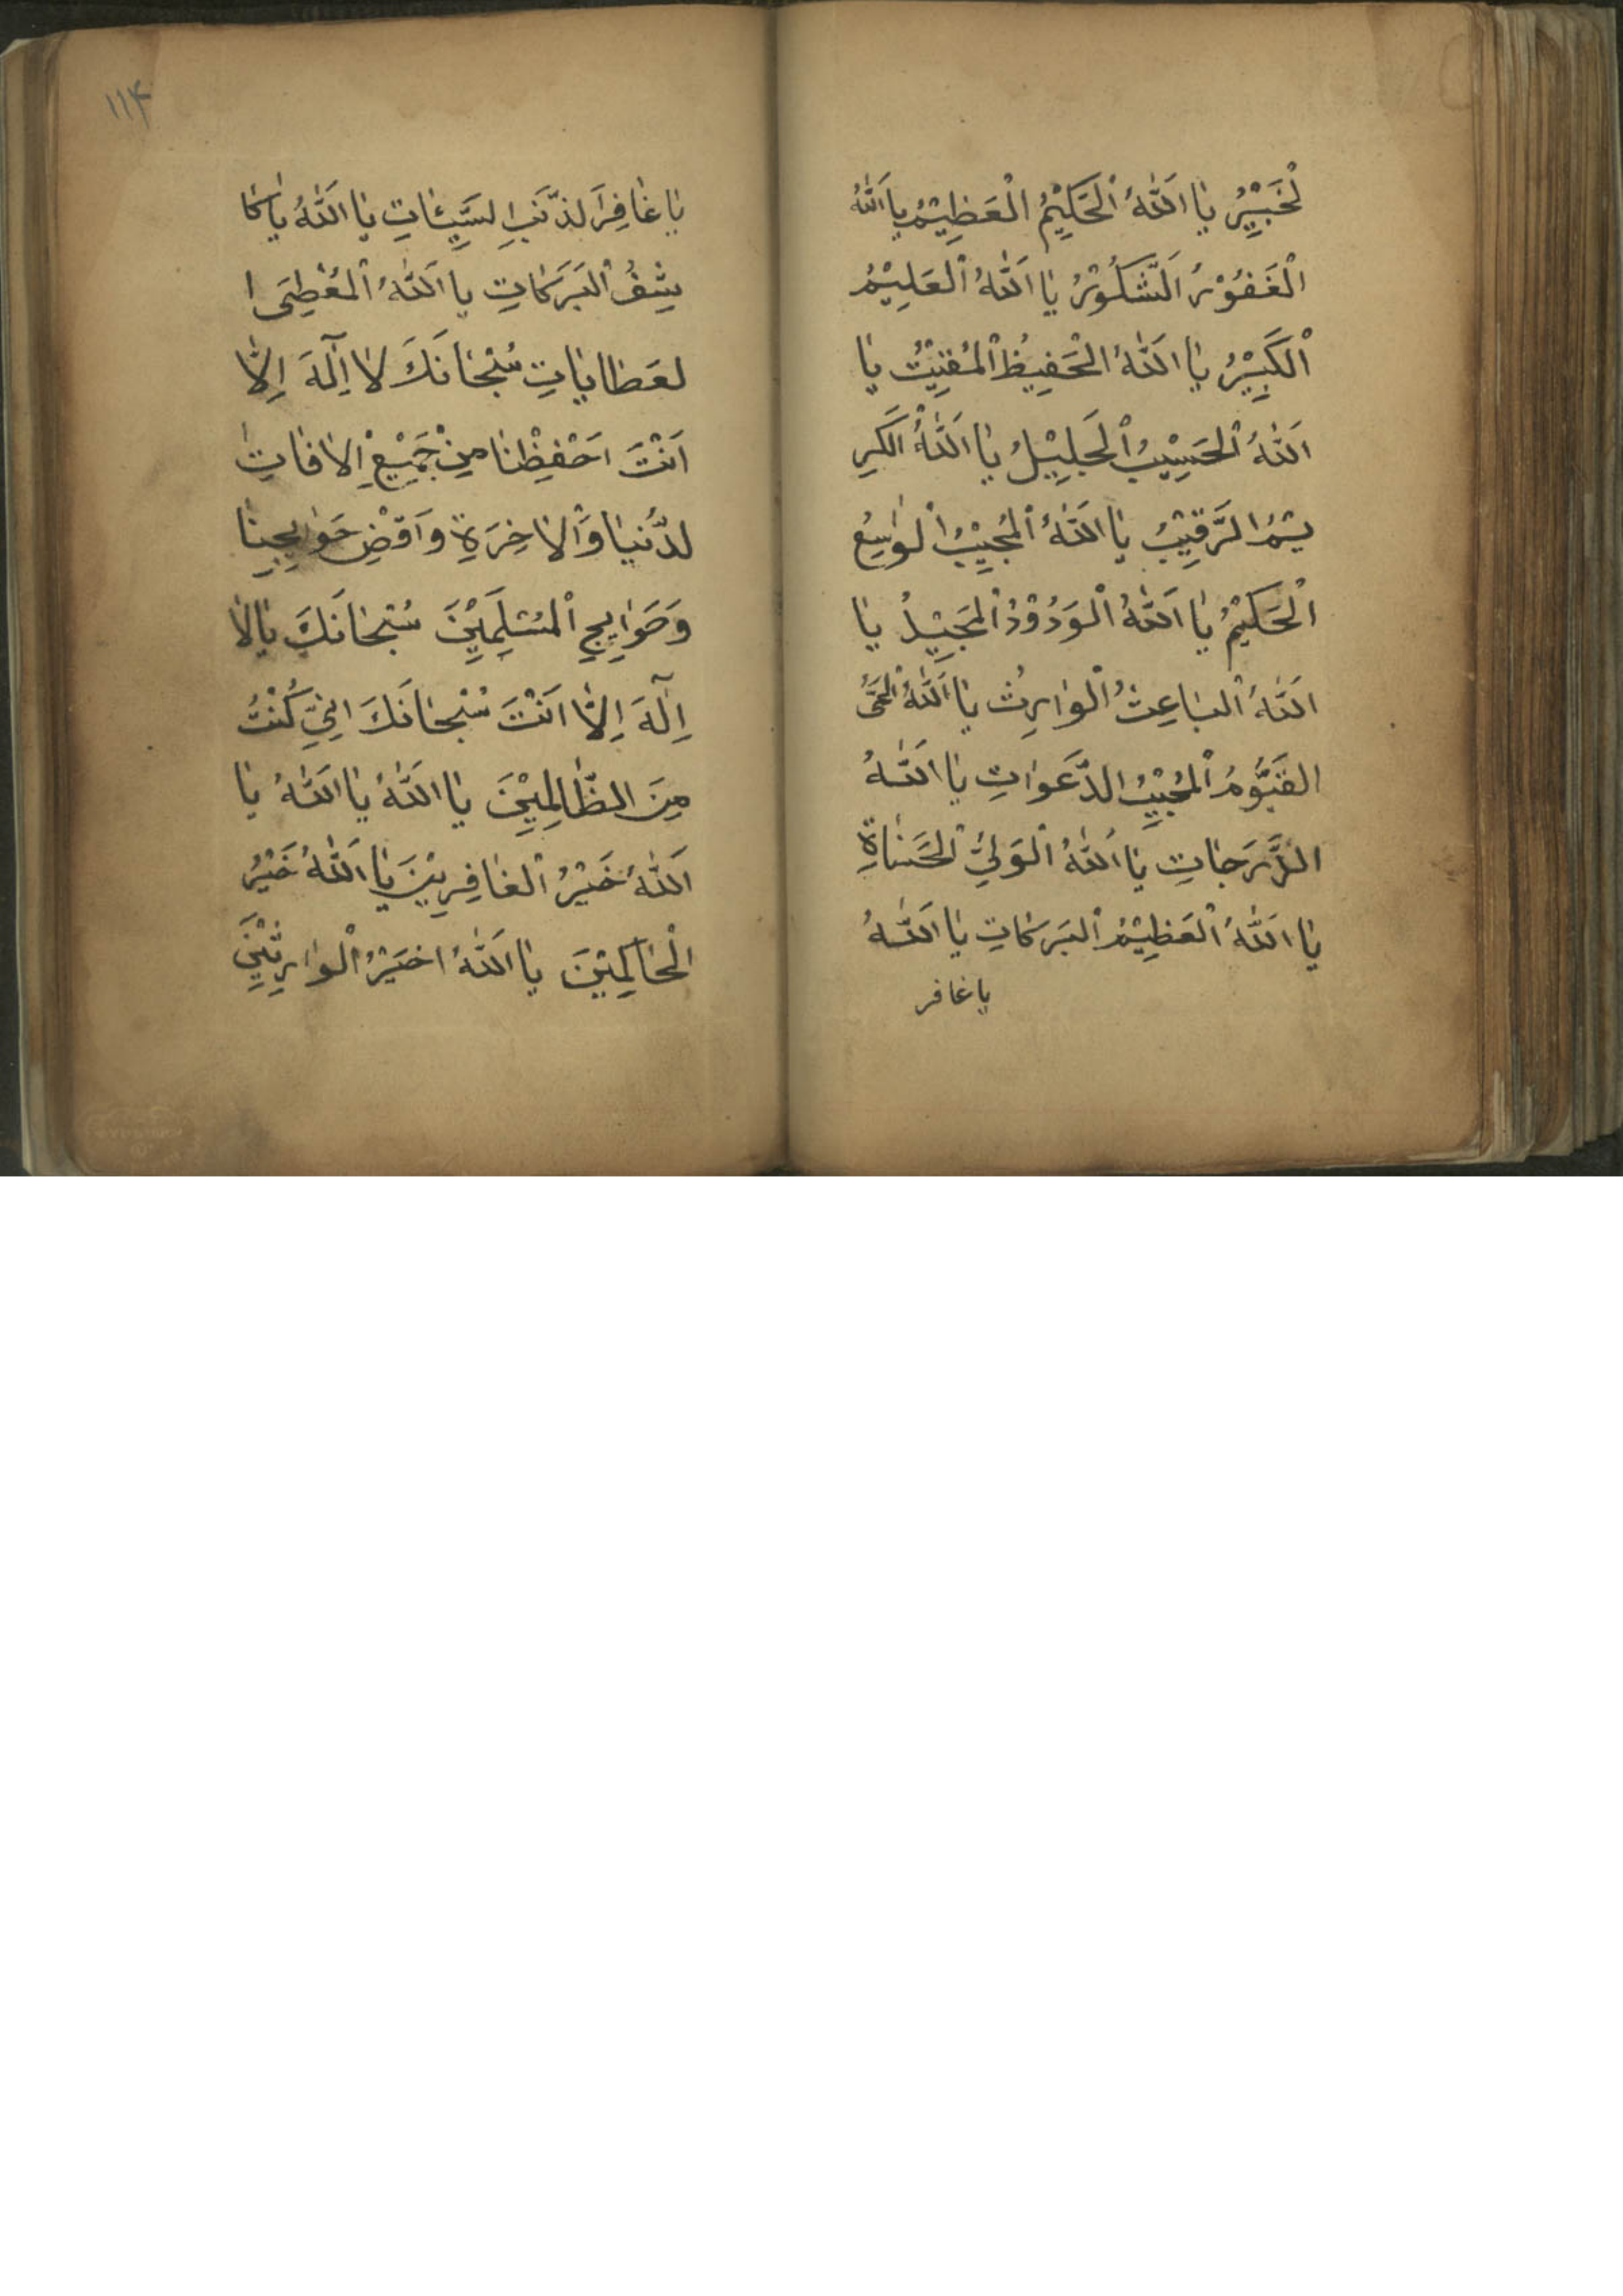 لْخَبِيْرُ يَا اَللّٰهُ الْحَكِيْمُ الْعَظِيْمُ يا اَللّٰهُ
الْغَفُوْرُ اَلشَّكُوْرُ يَا اَللّٰهُ الْعَلِيْمُ
الْكَبِيْرُ يَا اَللّٰهُ الْحَفِيْظُ الْمُقِيْتُ يَا
اَللّٰهُ الْحَسِيْبُ الْجَلِيْلُ يَا اَللّٰهُ الْكَرِ
يْمُ الرَّقِيْبُ يَا اَللّٰهُ الْمُجِيْبُ الْوَاسِعُ
الْحَكِيْمُ يَا اَللّٰهُ الْوَدُوْدُ الْمَجِيْدُ يَا
اَللّٰهُ الْبَاعِثُ الْوَارِثُ يَا اَللّٰهُ الْحَىُّ
القَيُّوْمُ الْمُجِيْبُ الدَّعَوَاتِ يَا اَللّٰهُ
الدَّرَجَاتِ يَا اَللّٰهُ الْوَلِىُّ الْحَسَنَاةِ
يَا اَللّٰهُ الْعَظِيْمُ الْبَرَكَاتِ يَا اَللّٰهُ
يا غافر
۱۱۴
يَا غَافِرَ لذَّنْبِ لسَّيِّئَاتِ يَا اَللّٰهُ يا كا
شِفُ الْبَرَكَاتِ يا اَللّٰهُ الْمُعْطِىَ ا
لعَطَايَاتِ سُبْحَانَكَ لَا اِلٰهَ اِلَّا
اَنْتَ اَحْفِظْنَا مِنْ جَمِيْعِ الْاٰفَاتِ
لدُّنْيَا وَالْاٰخِرَةِ وَاَقْضِ حَوَايِجِنَا
وَحَوَايِجِ الْمُسْلِمِيْنَ سُبْحَانَكَ يَا لَا
اِلٰهَ اِلَّا اَنْتَ سُبْحَانَكَ اِنِّىْ كُنْتُ
مِنَ الظَّالِمِيْنَ يَا اَللّٰهُ يَا اَللّٰهُ يَا
اَللّٰهُ خَيْرُ الْغَافِرِيْنَ يَا اَللّٰهُ خَيْرُ
الْحَاكِمِيْنَ يَا اَللّٰهُ اخَيْرُ الْوَارِثِيْنَ